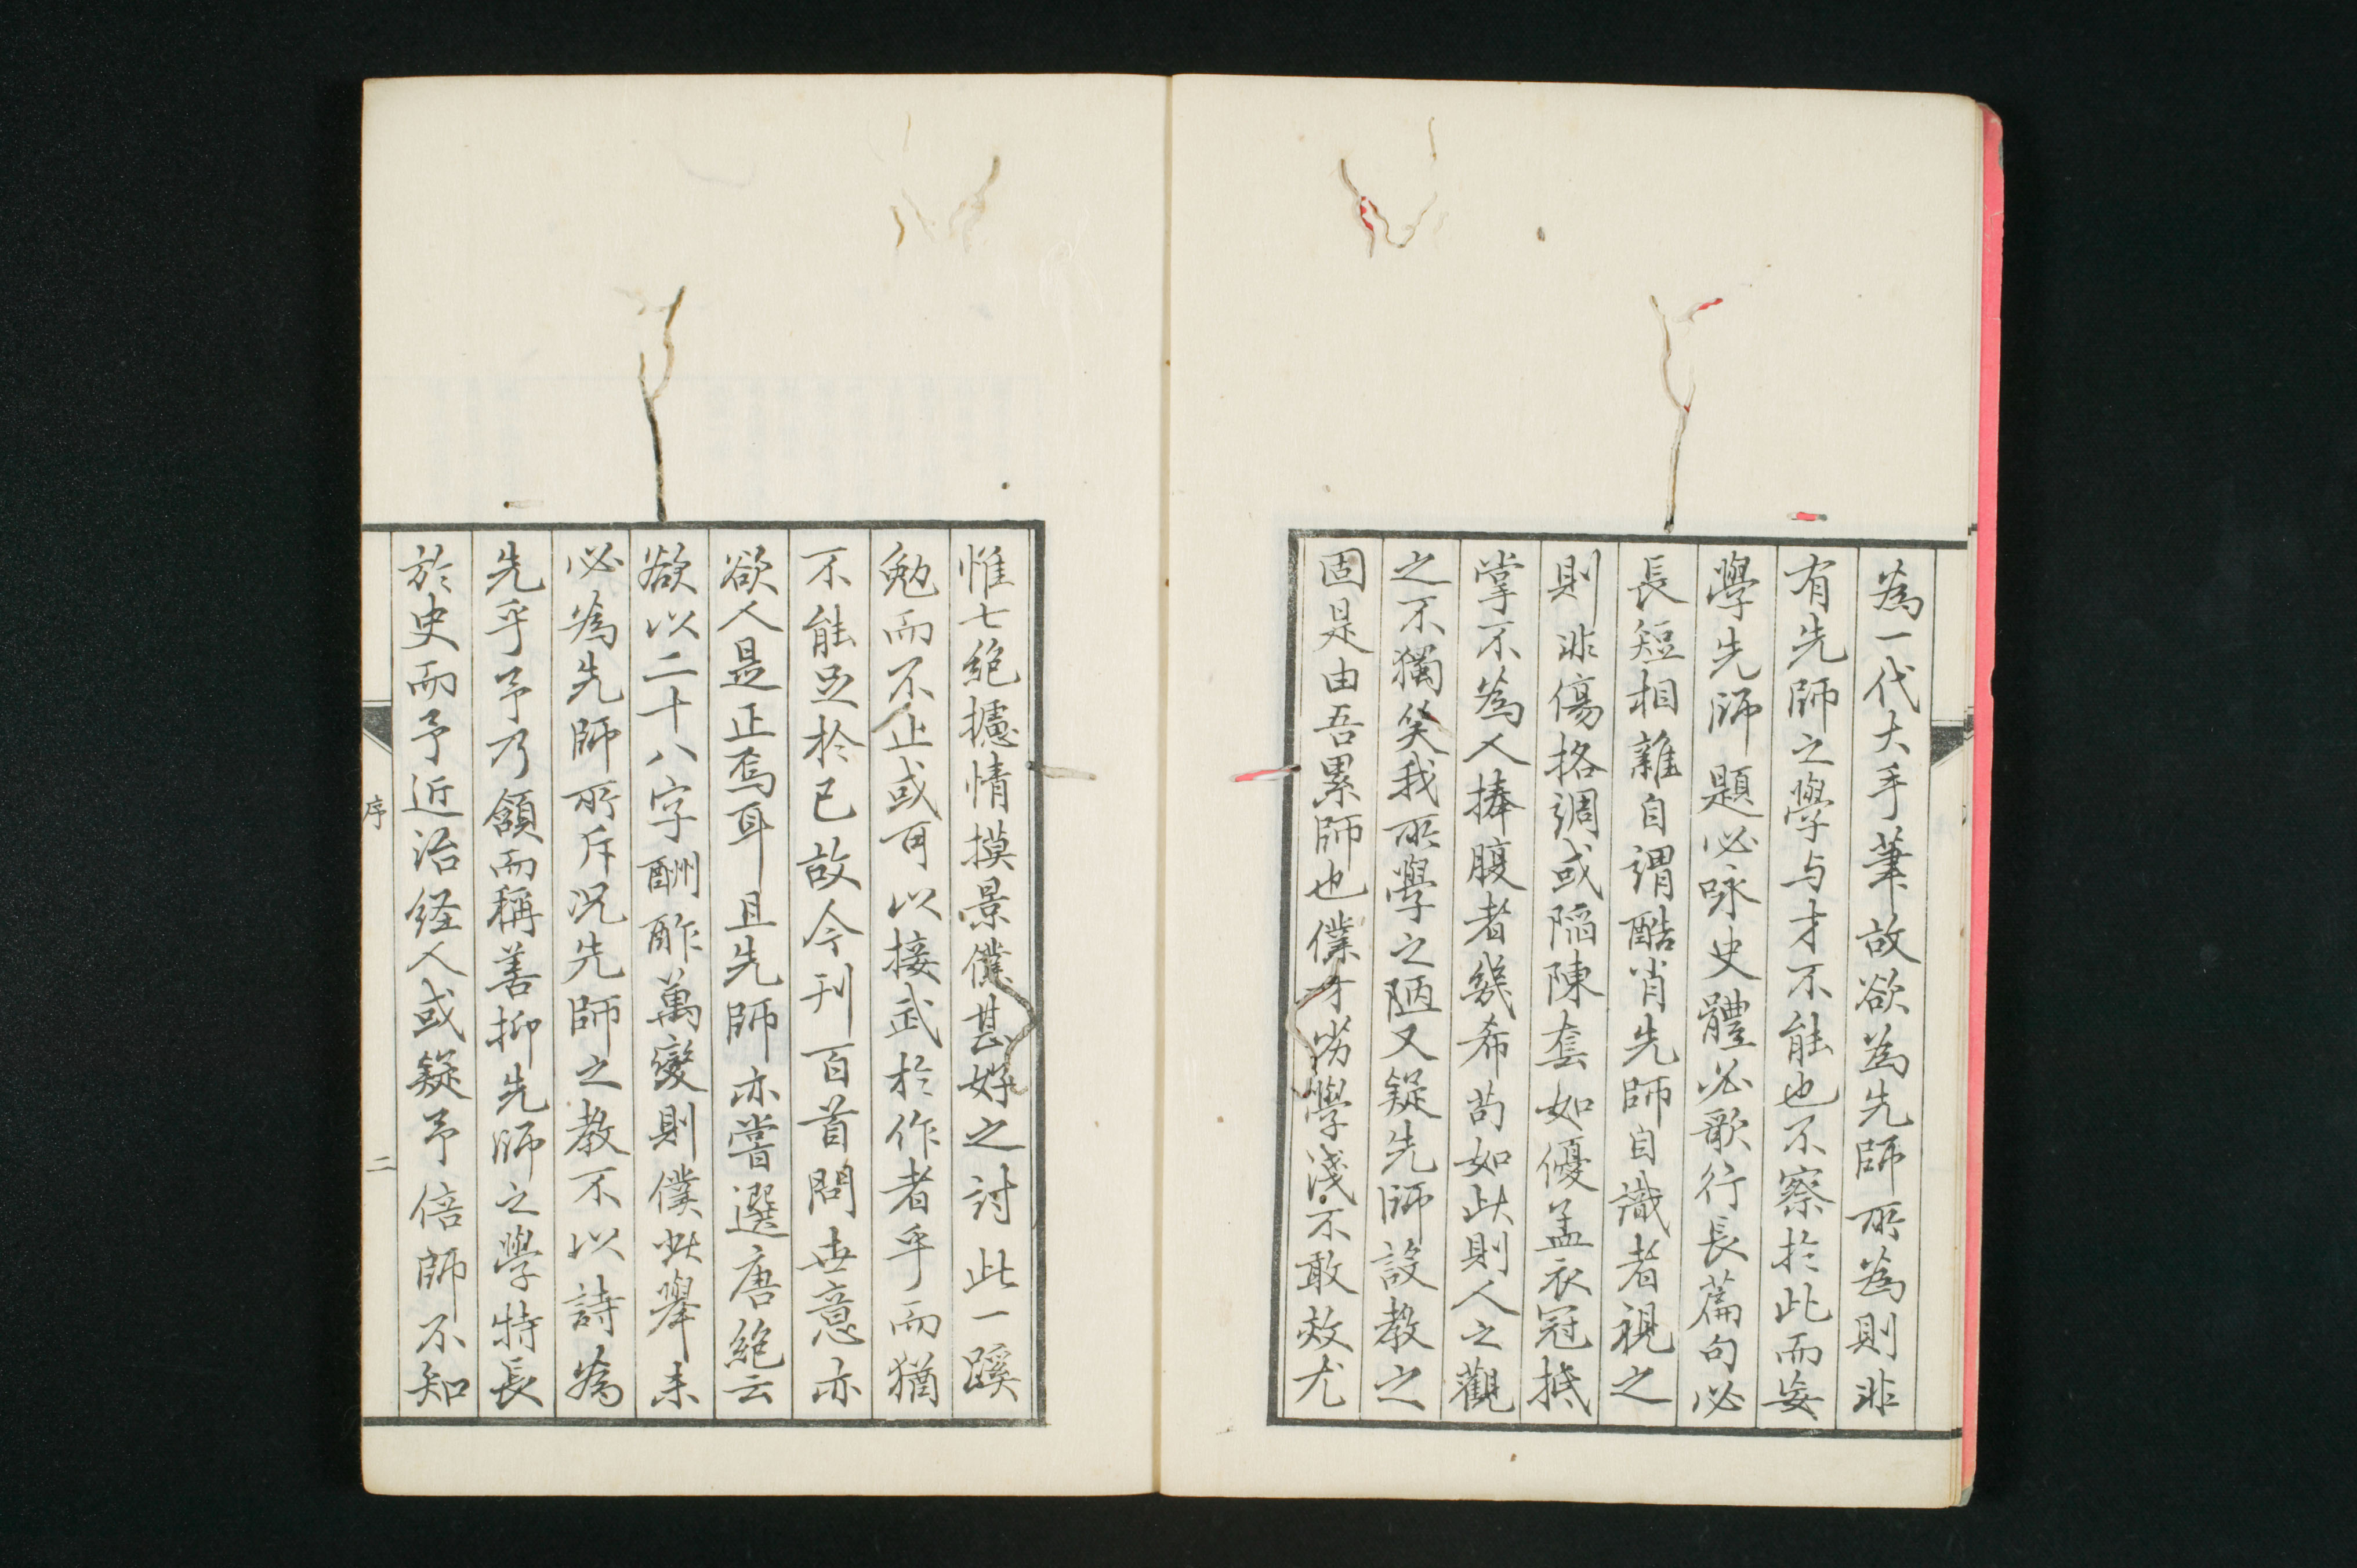 為一代大手筆故欲為先師所為則非
有先師之學与才不能也不察於此而妄
學先師題必咏史體必歌行長篇句必
長短相雜自謂酷肖先師自識者視之
則非傷格調或陥陳套如優孟衣冠抵
掌不為人捧腹者幾希苟如此則人之觀
之不獨笑我所學之陋又疑先師設教之
固是由吾累師也僕才劣學淺不敢效尤
惟七絶攄情摸景僕甚好之討此一蹊
勉而不止或可以接武於作者乎而猶
不能足於已故今刊百首問世意亦
欲人是正焉耳且先師亦嘗選唐絶云
欲以二十八字酬酢萬變則僕此舉未
必為先師所斥况先師之教不以詩為
先乎予乃頷而稱善抑先師之學特長
於史而予近治経人或疑予倍師不知
序
二